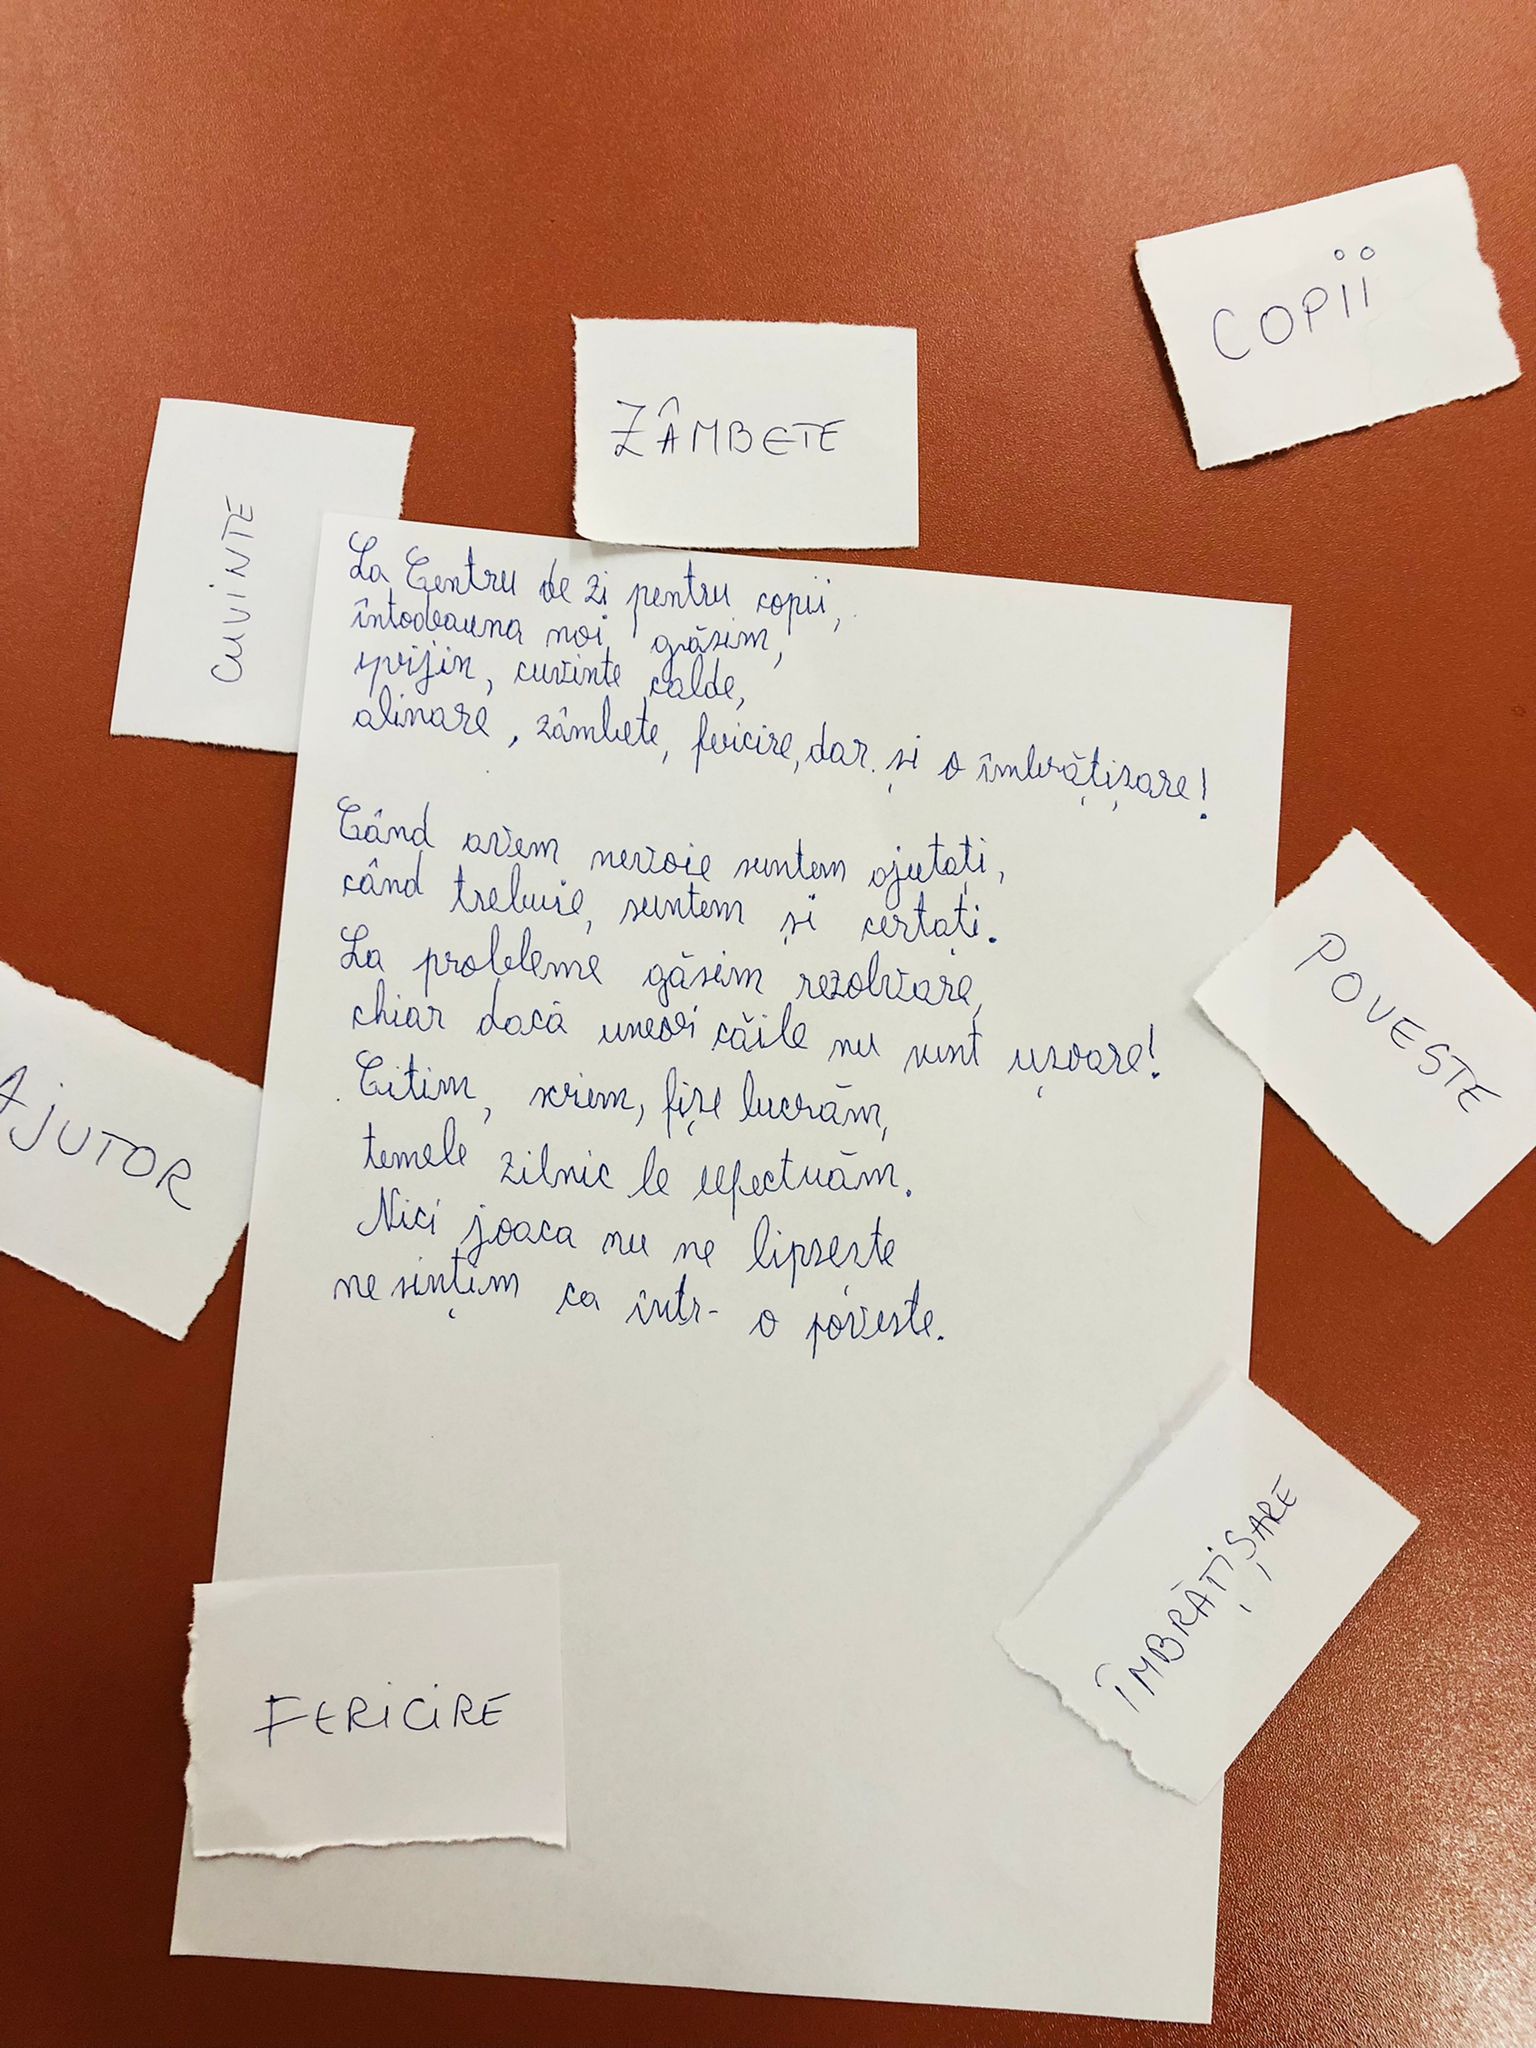 COPII
ZÂMBETE
CUVINTE
La Centru de zi pentru copii,
întodeauna noi, găsim,
sprijin, cuvinte calde,
alinare, zâmbete, fericire, dar și o îmbrățișare!
Când avem nevoie suntem ajutați,
când trebuie, suntem și certați.
La probleme găsim rezolvare,
chiar dacă uneori căile nu sunt ușoare!
Citim, scriem, fișe lucrăm,
temele zilnic le efectuăm.
Nici joaca nu ne lipsește
ne simțim ca într-o poveste.
POVESTE
AJUTOR
ÎMBRĂȚIȘARE
FERICIRE